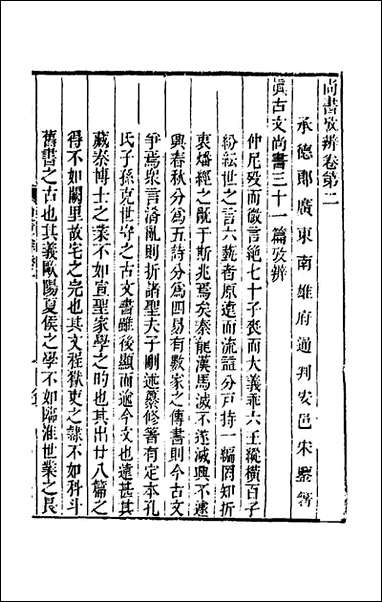 尚書攷辨卷第二
承德郎廣東南雄府通判安邑宋鑒箸
眞古文尚書三十一篇攷辨
仲尼殁而微言絶七十子喪而大義乖六王縱橫百子
紛紜世之言六藝者原遠而流詿分戸持一編罔知折
衷燔經之厭于斯兆焉矣秦龍漢馬滅不遂減興不遽
興春秋分爲五詩分爲四易有數家之傳書則今古文
爭焉衆言淆亂則折諸聖夫子刪述纂修箸有定本孔
氏子孫克世守之古文書雖後顯而遜今文也遠甚其
藏秦博士之業不如宣聖家學之的也其出廿八篇之
得不如闕里故宅之完也其文程獄吏之隷不如科斗
舊書之古也其義歐陽夏侯之學不如臨淮世業之長